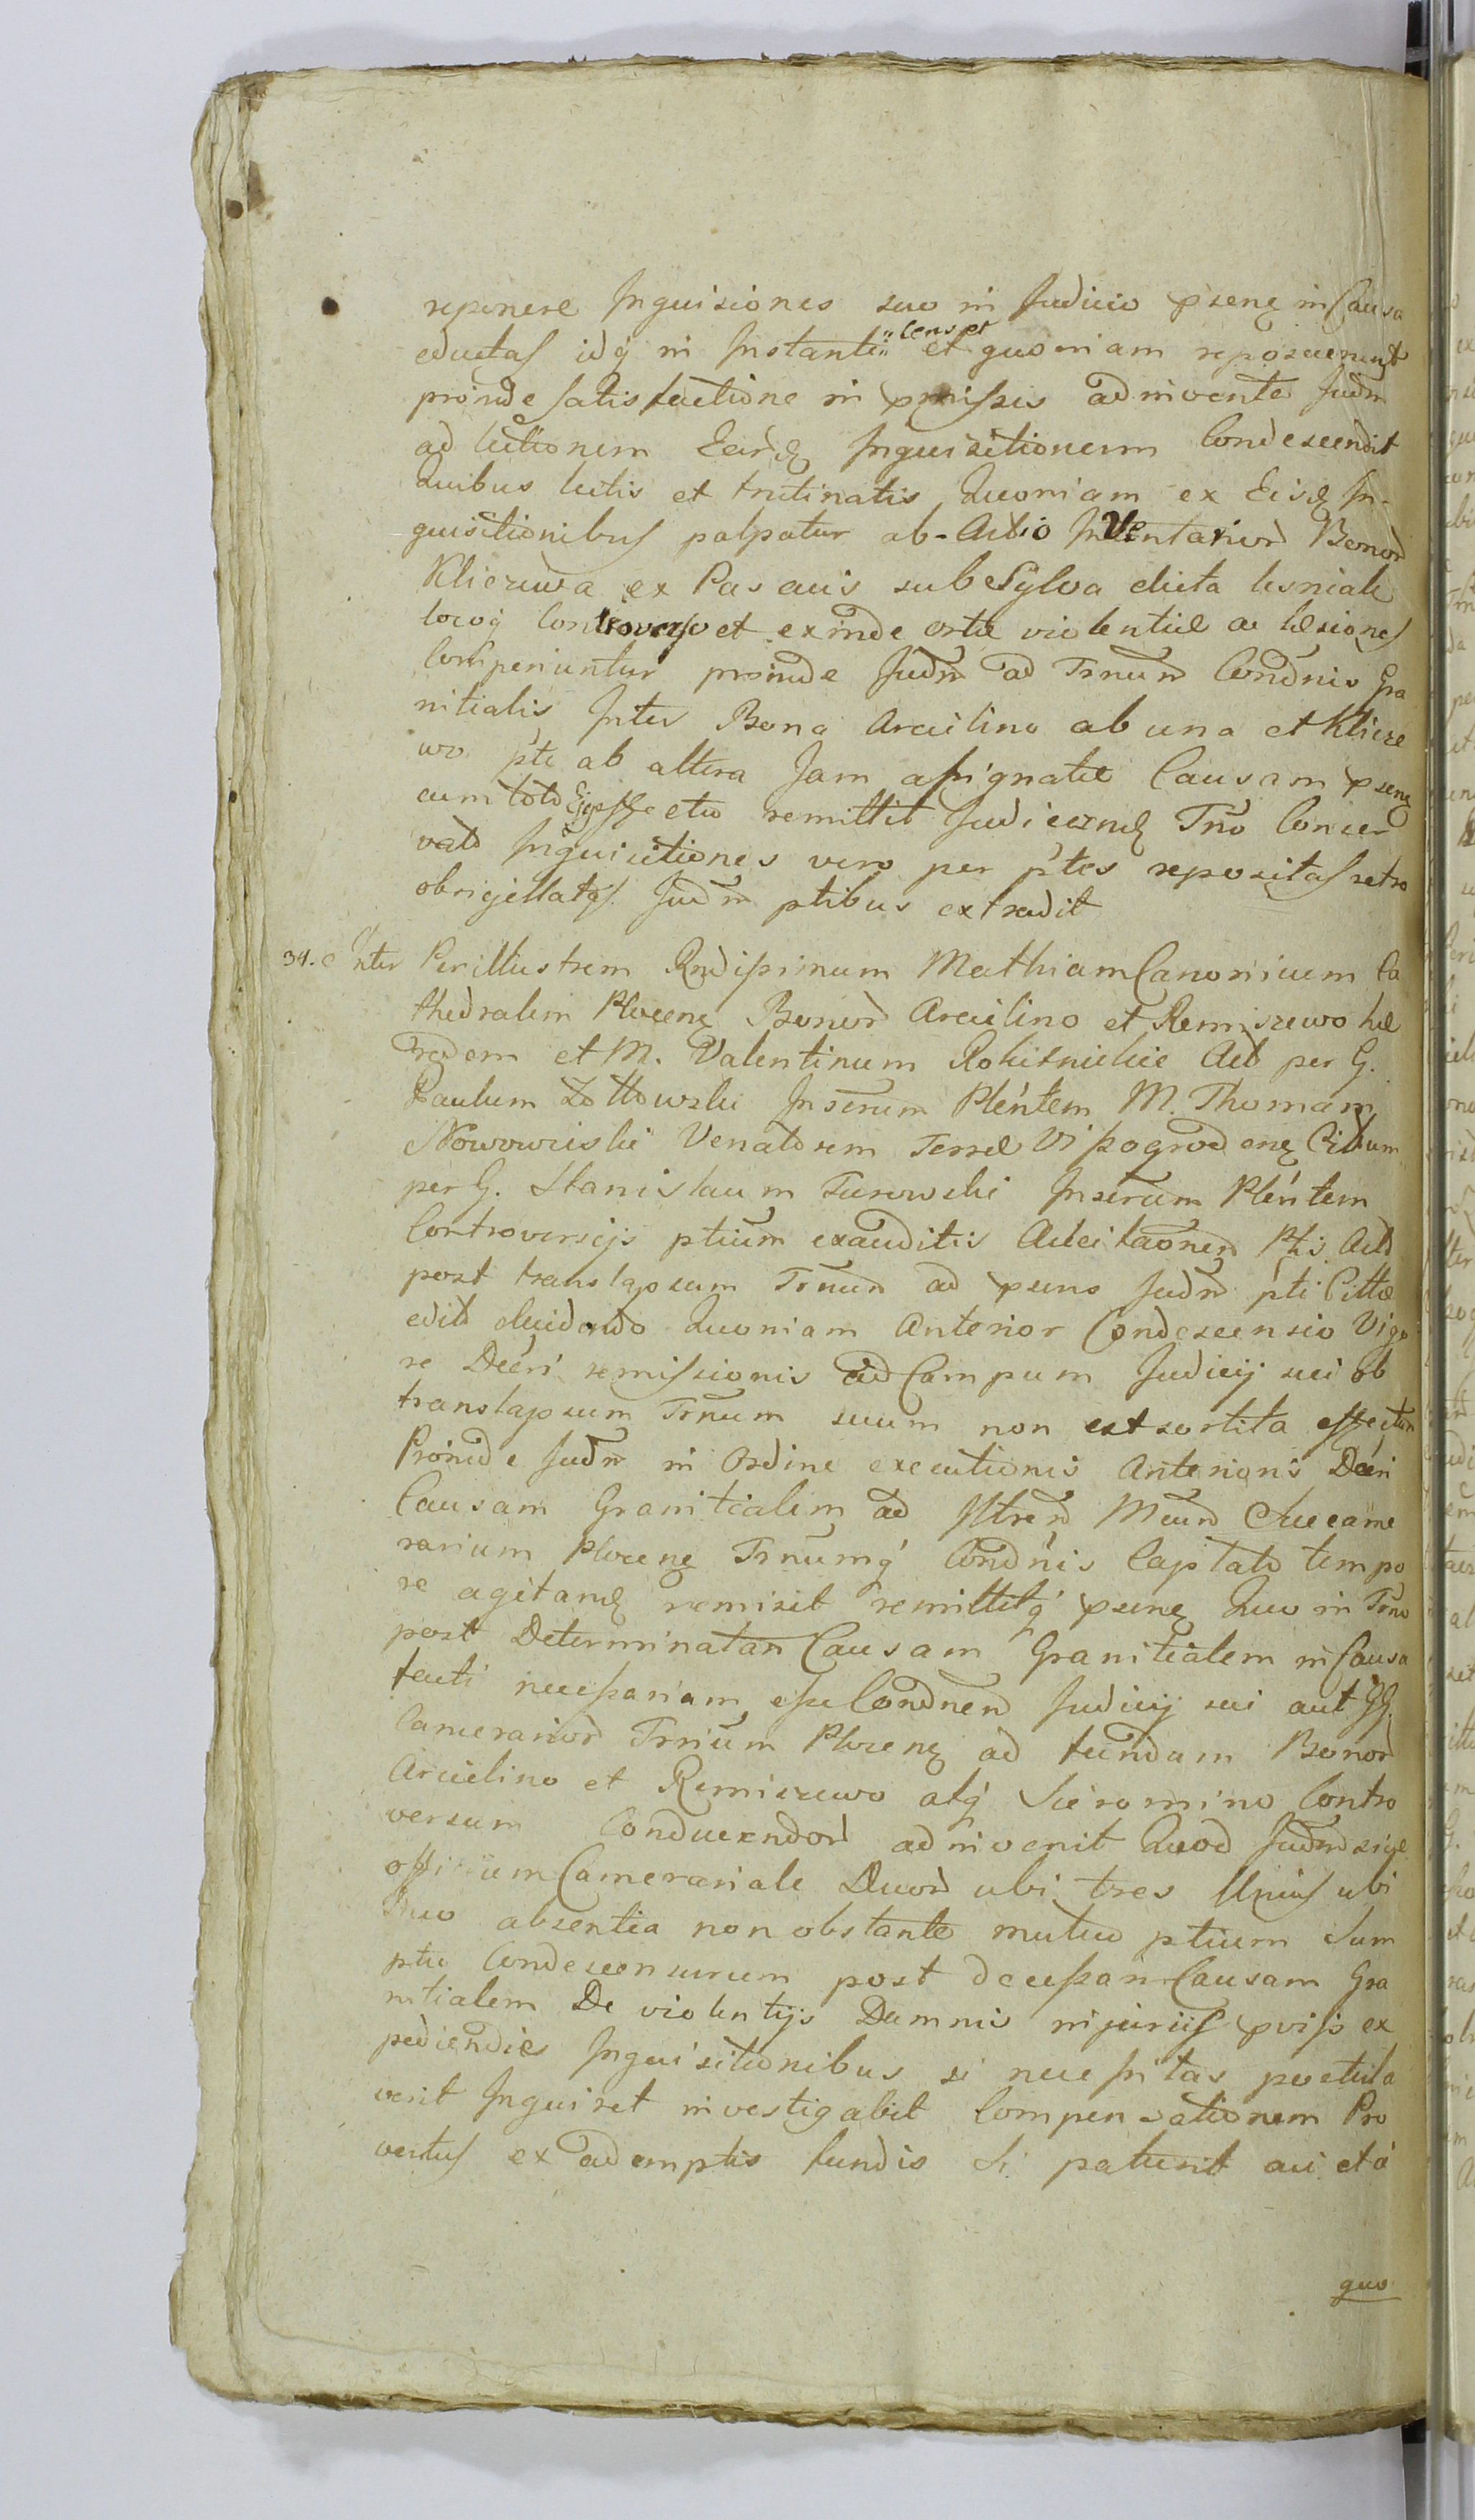 reponere Inquisiones suo in Judicio psenę in Causa
eductas idq́ in Instanti :: cens et et quoniam reposuerunt
proinde satisfactione in pmissis adinventa Judm̃
ad lectionem Eardę Inquisitionum Condescendit
Quibus lectis et trutinatis Quoniam ex Eisdę In-
quisitionibus palpatur ab-Actio Inventariorũ Bonorũ
Kliczewa ex Pascuis sub Sylva dicta lesniale
locoq́ Controverso et exinde ortæ violentiæ ac læsiones
Comperiuntur proinde Judm̃ ad Trnum Condnis Gra
nitialis Inter Bona Arcilino ab una et Klicze
wo pte ab altera Jam assignatæ Causam psenę
cum toto Ejus effectu remittit Judicandę Trno Conser
vato Inquisitiones vero per ptes repositas retro
obsigillatas Judm̃ ptibus extradit
34. Inter Perillustrem Rndissimum Mathiam Canonicum Ca
thedralem Plocenę Bonorũ Arcilino et Remiszewo hæ
redem et M. Valentinum Rokitnickie Act per G.
Paulum Zołtowski Inserum Pléntem M. Thomam
Nowowieiski Venatorem Terræ Viszogrodenę Citum
per G. Stanislaum Turowski Inserum Pléntem
Controversijs ptium exauditis Adcitaonem Ptis Act
post translapsum Trnum ad psens Judm̃ pti Cittæ
edito elucidando Quoniam Anterior Condescensio Vigo
re Decri remissionis ad Campum Judicij sui ob
translapsum Trnum suum non est sortita effectum
Proinde Judm̃ in Ordine executionis Anterioris Decri
Causam Granitialem ad Illtrem Mcum Succame
rarium Plocenę Trnumq́ Condnis Captato tempo
re agitandę remisit remittitq́ psenę Quo in Trno
post Determinatam Causam Granitialem in Causa
facti necessariam esse Condnem Judicij sui aut GG.
Camerariorũ Trrium Plocenę ad fundum Bonorũ
Arcilino et Remiszewo atq́ Sieromino Contro
versum Conducendorũ adinvenit Quod Judm̃ sive
officium Camerariale Duorũ ubi tres Unius ubi
Duo absentia non obstante mutuo ptium Sum
ptu Condescensurum post decisam Causam Gra
nitialem De violentijs Damnis injurijs pviss ex
pediendis Inquisitionibus si necessitas postula
verit Inquiret investigabit Compensationem Pro
ventus ex ademptis fundis Si patuerit aut à
quo